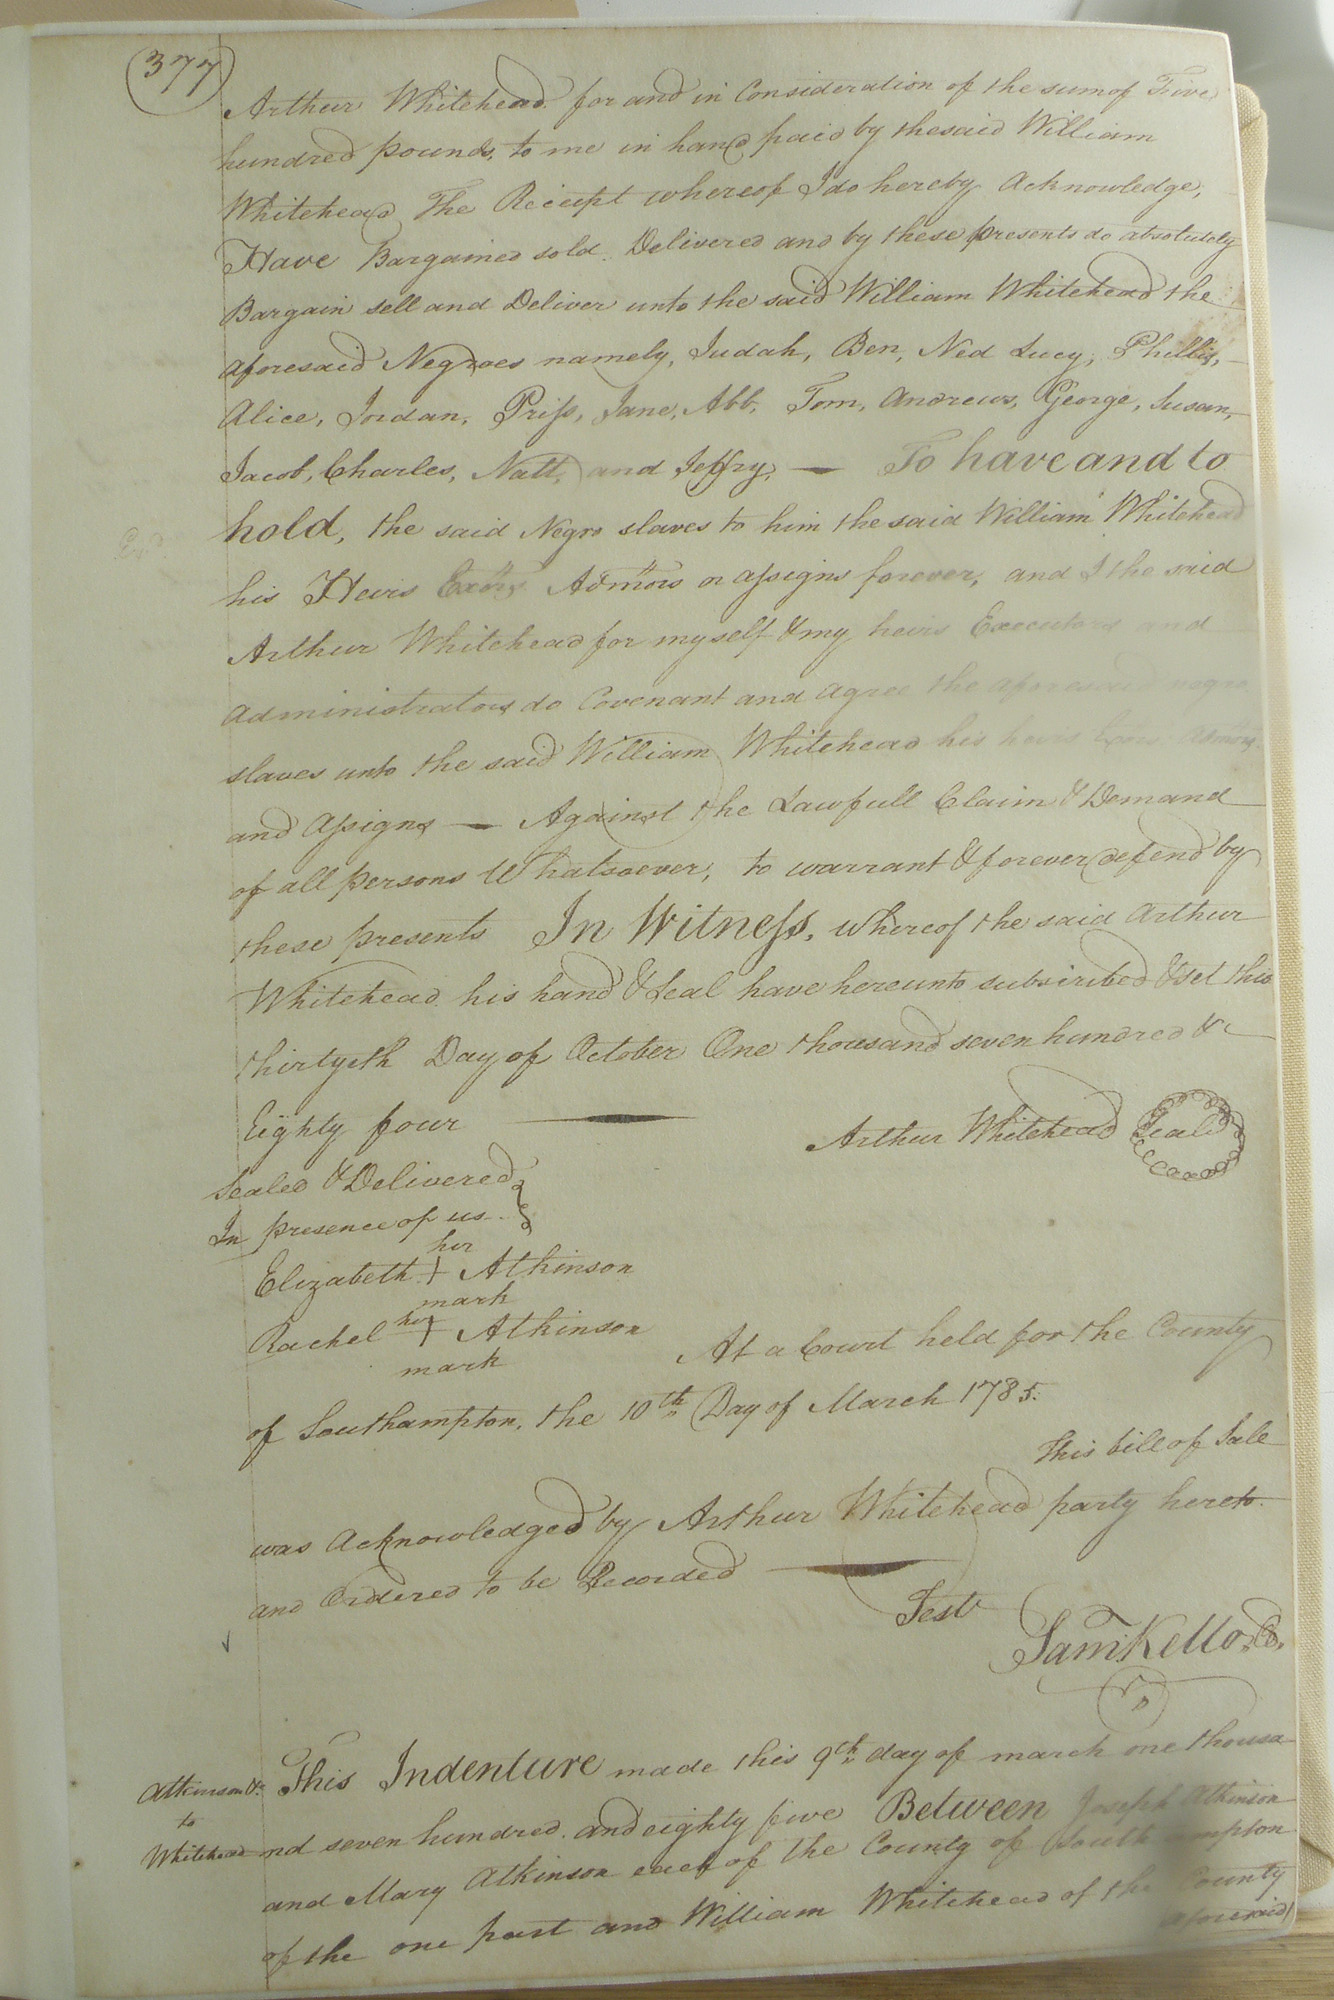 377
Arthur Whitehead for and in Consideration of the sum of Five
hundred pounds, to me in hand paid by the said William
Whitehead The Reciept whereof I do hereby Acknowledge,
Have Bargained sold Delivered and by these presents do absolutely
Bargain sell and Deliver unto the said William Whitehead the
aforesaid Negroes namely, Judah, Ben, Ned Lucy, Phillis,
Alice, Jordan, Priss, Jane, Abb, Tom, Andrews, George, Susan,
Jacob, Charles, Natt, and Jeffry, — To have and to
hold, the said Negro slaves to him the said William Whitehead
his Heirs Exors Admors or assigns forever, and I the said
Arthur Whitehead for myself & my heirs Executors and
administrators do Covenant and agree the aforesaid negro
slaves unto the said William Whitehead his heirs Exors Admors
and Assigns — Against the Lawfull Claim & Demand
of all persons Whatsoever, to warrant & forever defend by
these presents In Witness, whereof the said Arthur
Whitehead his hand & Seal have hereunto subscribed & set this
thirtyeth Day of October One thousand seven hundred &
Eighty four
Arthur Whitehead Seal
Sealed & Delivered
In presence of us
her
Elizabeth + Atkinson
mark
her
Rachel + Atkinson
mark
At a Court held for the County
of Southampton, the 10th Day of March 1785.
This bill of Sale
was Acknowledged by Arthur Whitehead party hereto
and Ordered to be Recorded
Test
Sam Kello,
Atkinson &
to
Whitehead
This Indenture made this 9th day of march one thousa
nd seven hundred and eighty five Between Joseph Atkinson
and Mary Atkinson each of the County of Southampton
of the one part and William Whitehead of the County
aforesaid